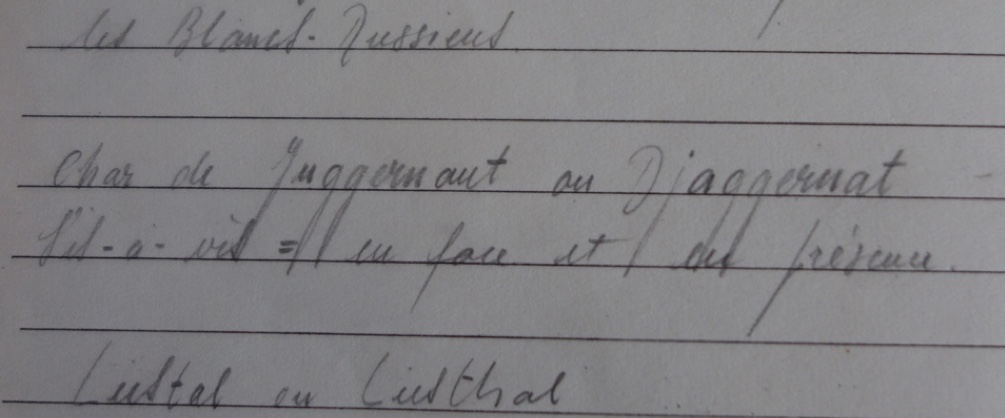 les Blancs-Russiens
Char de Juggernaut ou Djaggernat -
Vis-à-vis = en face et en présence.
Liestal ou Liesthal